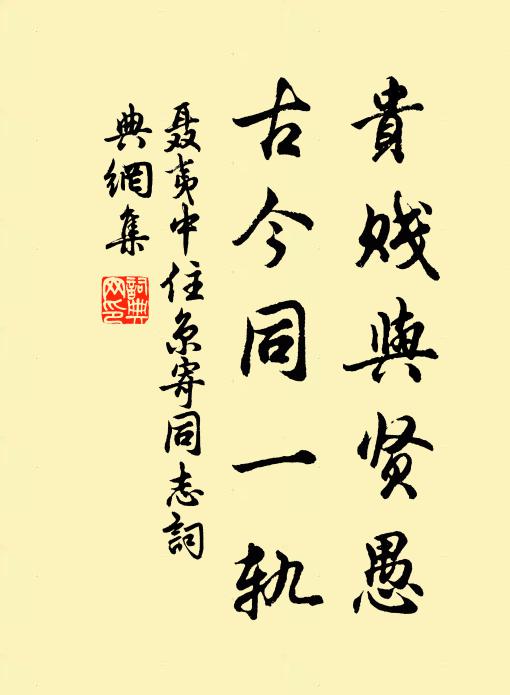 貴賤與贤愚
古今同一軌
聂夷中住京寄同志詞
典網集
詞典
网印